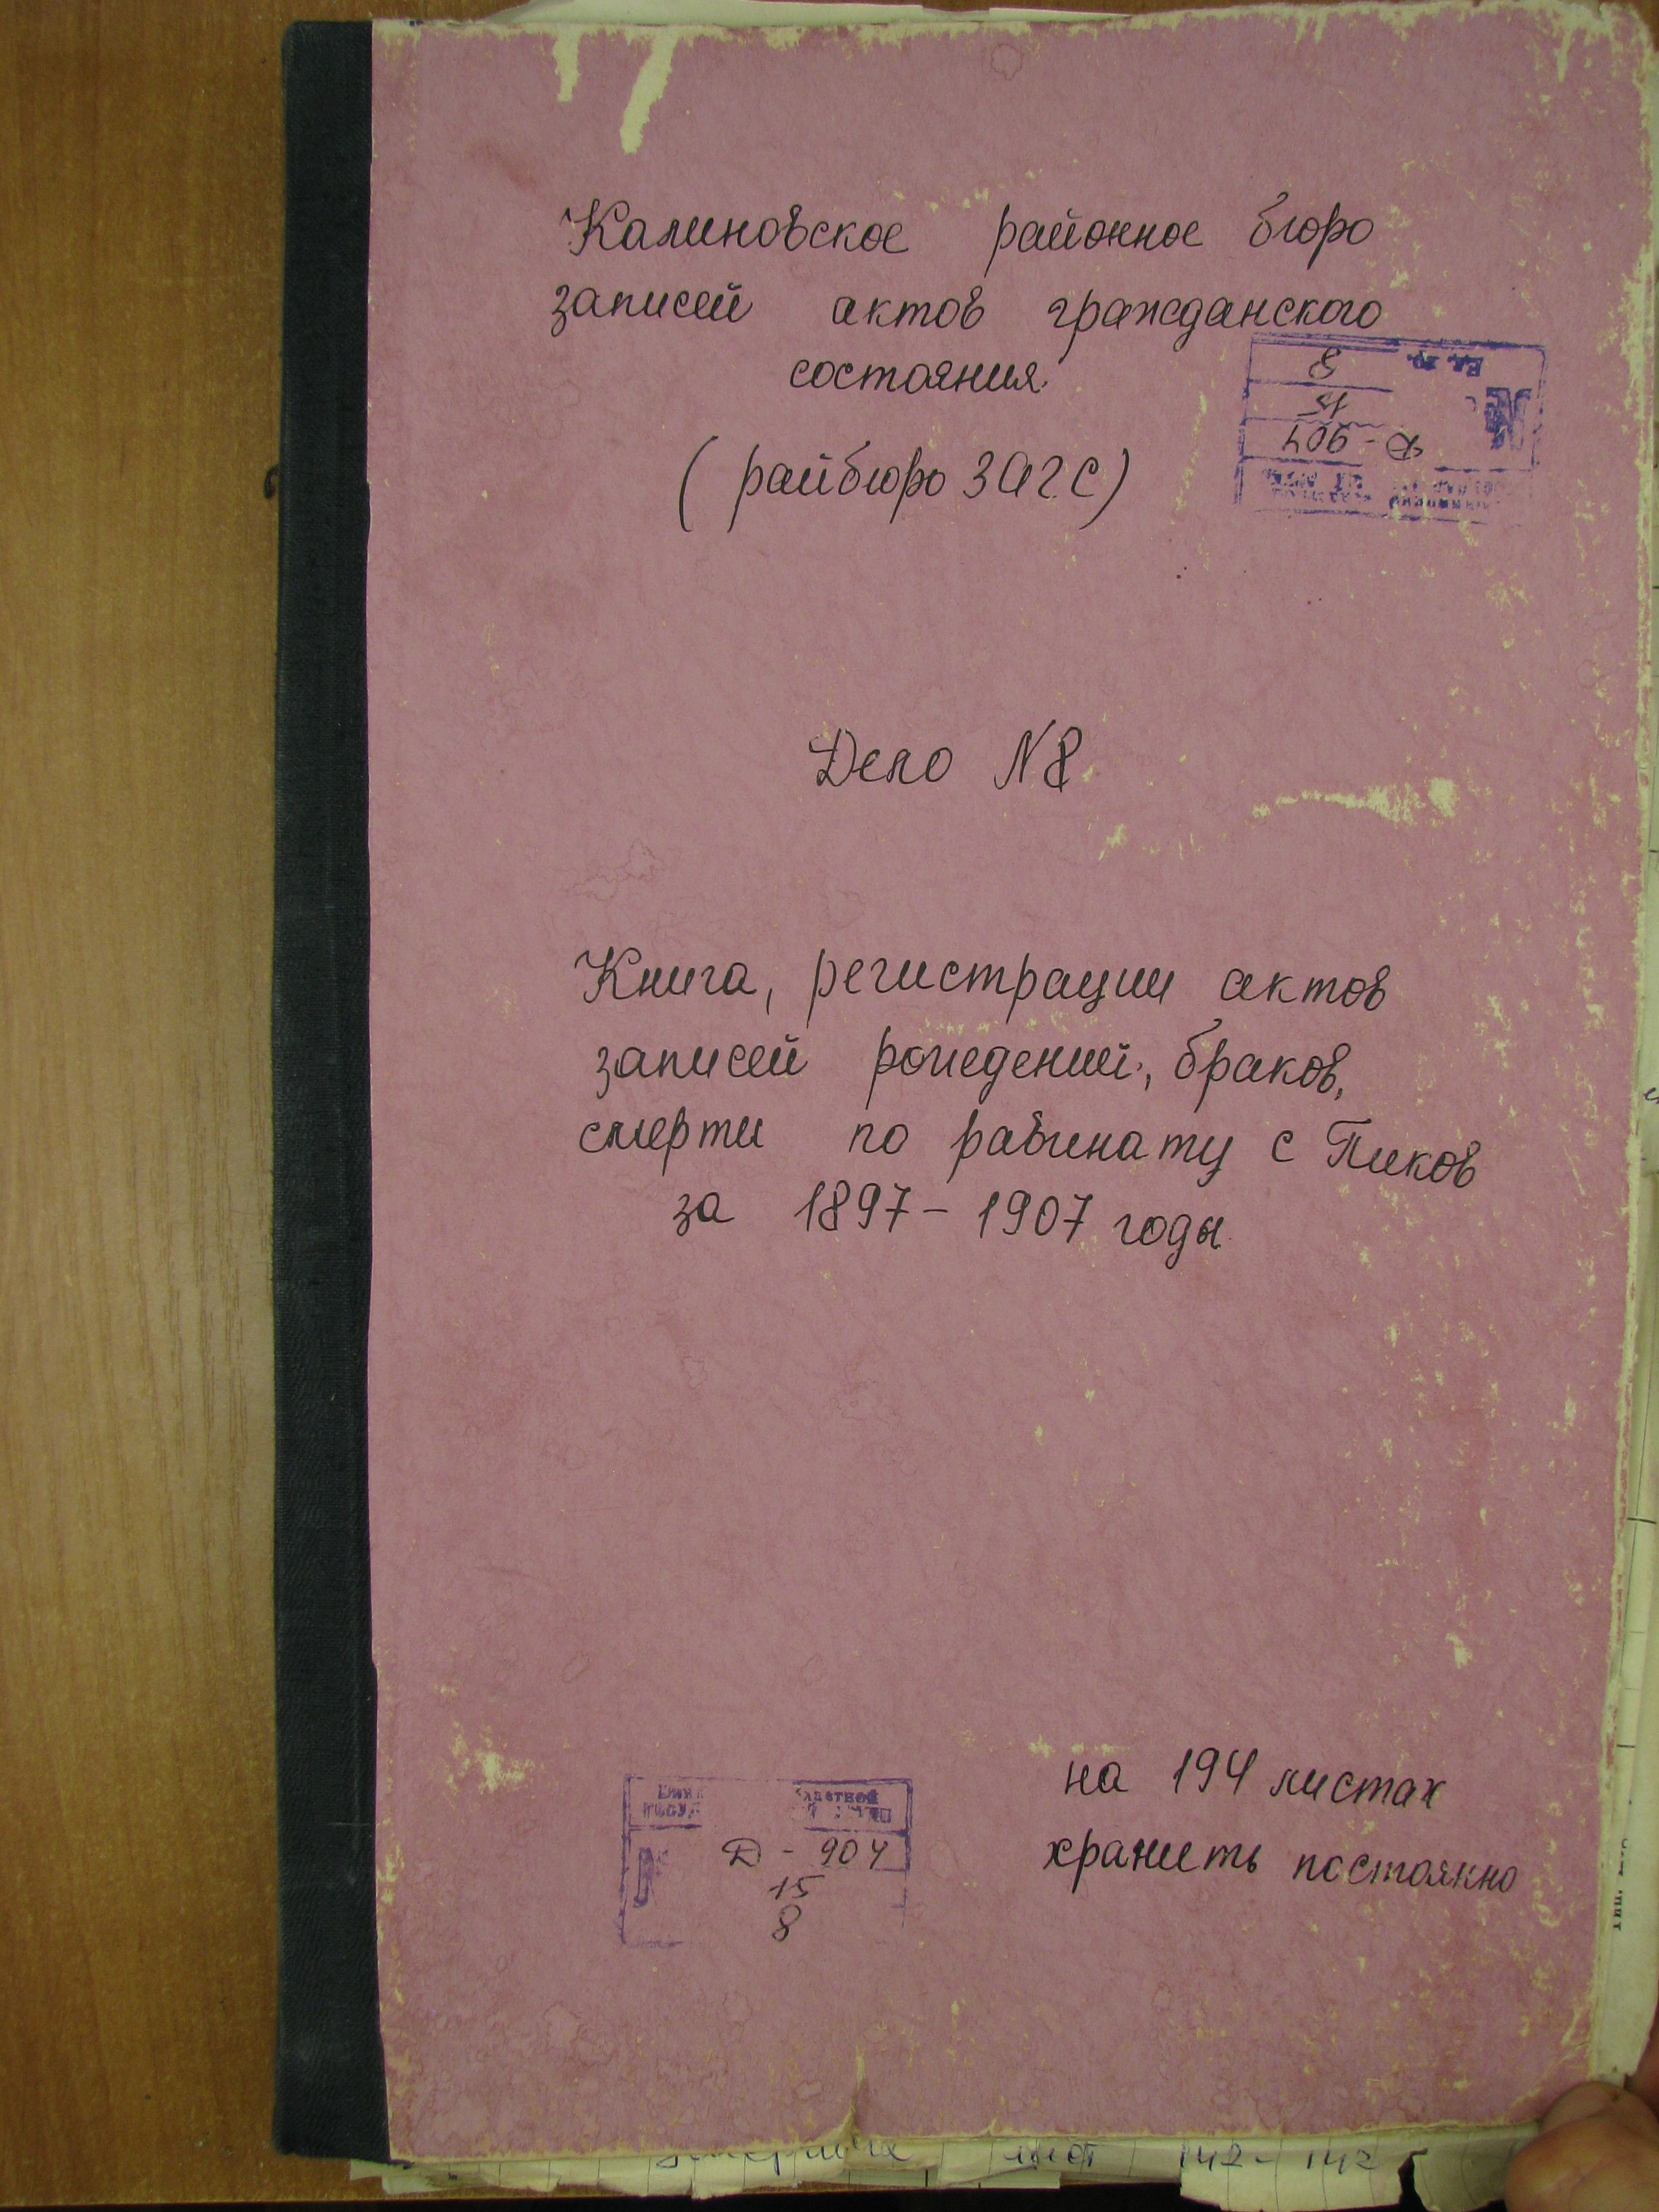 Калиновское районное бюро
записей актов гражданского
состояния
(райбюро ЗАГС)
Ед. хр. 8
15
Д-904
Дело N8
Книга, регистрации актов
записей рождений, браков,
смерти по равинату с Пиков
за 1897-1907 годы
на 194 листах
хранить постоянно
Д-904
15
8
лист 142-142